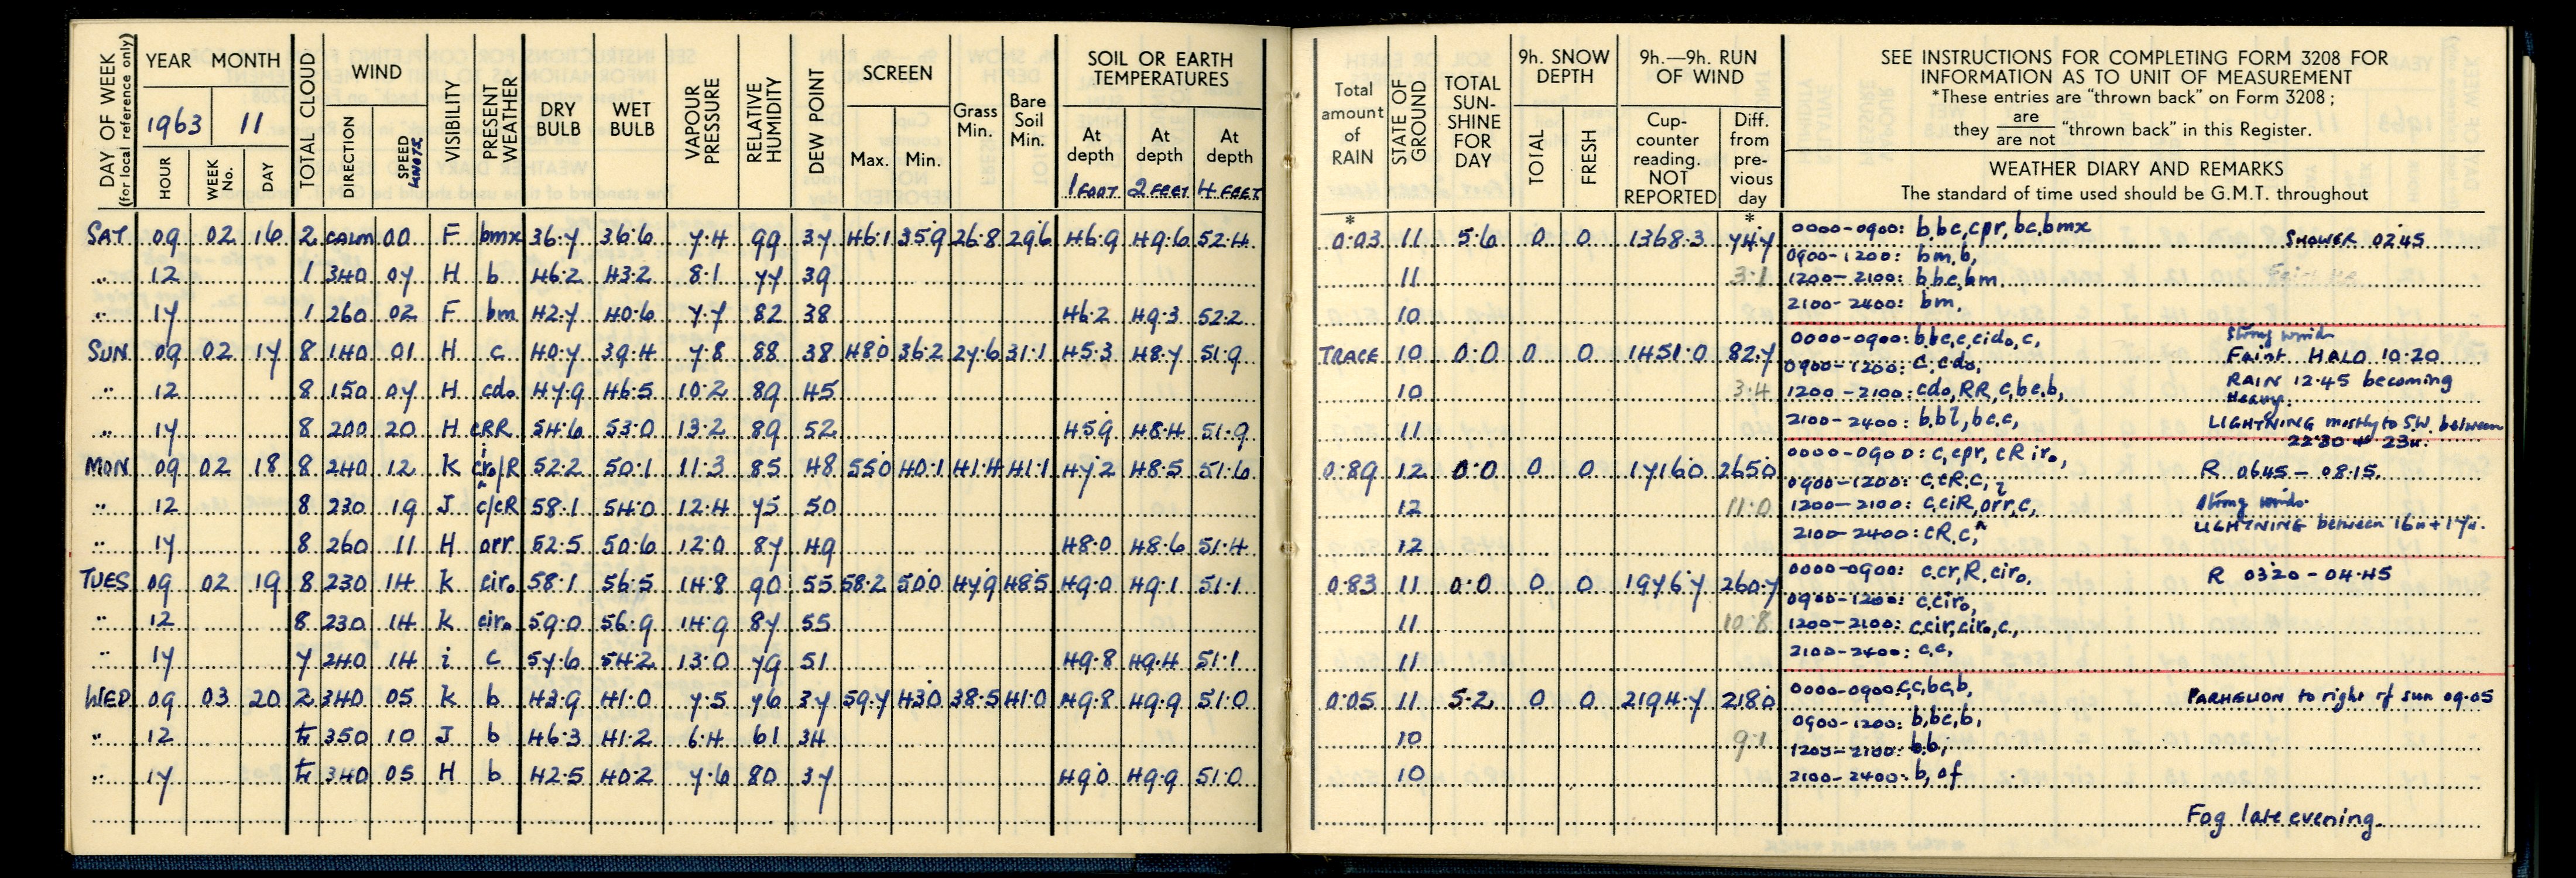 DAY OF WEEK (for local reference only)
YEAR MONTH
1963 11
HOUR WEEK No. DAY
TOTAL CLOUD
WIND
DIRECTION SPEED KNOTS
VISIBILITY
PRESENT WEATHER
DRY BULB
WET BULB
VAPOUR PRESSURE
RELATIVE HUMIDITY
DEW POINT
SCREEN
Max. Min.
Grass Min.
Bare Soil Min.
SOIL OR EARTH TEMPERATURES
At depth 1 FOOT
At depth 2 FEET
At depth 4 FEET
SAT 09 02 16 2 CALM 00 F bmx 36.7 36.6 7.4 99 37 46.1 35.9 26.8 29.6 46.9 49.6 52.4
" 12 1 340 07 H b 46.2 43.2 8.1 77 39
" 17 1 260 02 F bm 42.7 40.6 7.7 82 38 46.2 49.3 52.2
SUN 09 02 17 8 140 01 H c 40.7 39.4 7.8 88 38 48.0 36.2 27.6 31.1 45.3 48.7 51.9
" 12 8 150 07 H cdo 47.9 46.5 10.2 89 45
" 17 8 200 20 H cRR 54.6 53.0 13.2 89 52 45.9 48.4 51.9
MON 09 02 18 8 240 12 K ciro/R 52.2 50.1 11.3 85 48 55.0 40.1 41.4 41.1 47.2 48.5 51.6
" 12 8 230 19 J c/cR 58.1 54.0 12.4 75 50
" 17 8 260 11 H orr 52.5 50.6 12.0 87 49 48.0 48.6 51.4
TUES 09 02 19 8 230 14 K ciro 58.1 56.5 14.8 90 55 58.2 50.0 47.9 48.5 49.0 49.1 51.1
" 12 8 230 14 K ciro 59.0 56.9 14.9 87 55
" 17 7 240 14 i c 57.6 54.2 13.0 79 51 49.8 49.4 51.1
WED 09 03 20 2 340 05 K b 43.9 41.0 7.5 76 37 59.7 43.0 38.5 41.0 49.8 49.9 51.0
" 12 tr 350 10 J b 46.3 41.2 6.4 61 34
" 17 tr 340 05 H b 42.5 40.2 7.6 80 37 49.0 49.9 51.0
Total amount of RAIN
STATE OF GROUND
TOTAL SUN-SHINE FOR DAY
9h. SNOW DEPTH
TOTAL FRESH
9h.—9h. RUN OF WIND
Cup-counter reading. NOT REPORTED
Diff. from pre-vious day
SEE INSTRUCTIONS FOR COMPLETING FORM 3208 FOR
INFORMATION AS TO UNIT OF MEASUREMENT
*These entries are "thrown back" on Form 3208;
they are / are not "thrown back" in this Register.
WEATHER DIARY AND REMARKS
The standard of time used should be G.M.T. throughout
* *
0.03 11 5.6 0 0 1368.3 74.7 0000-0900: b,bc,cpr,bc,bmx SHOWER 0245
0900-1200: bm,b,
11 3.1 1200-2100: b,bc,bm.
10 2100-2400: bm.
Strong winds
TRACE 10 0.0 0 0 1451.0 82.7 0000-0900: b,bc,c,cido,c, Faint HALO 10.20
0900-1200: c,cdo,
10 3.4 1200-2100: cdo,RR,c,bc,b, RAIN 12.45 becoming
Heavy.
11 2100-2400: b,bl,bc,c, LIGHTNING mostly to S.W. between
22.30 + 23h.
0.89 12 0.0 0 0 1716.0 265.0 0000-0900: c,cpr,cR iro, R 0645-08.15.
0900-1200: c,cR,c,
12 11.0 1200-2100: c,ciR,orr,c, Strong winds
LIGHTNING between 16h + 17h.
12 2100-2400: cR,c,
0.83 11 0.0 0 0 1976.7 260.7 0000-0900: c,cr,R,ciro, R 0320-04.45
0900-1200: c,ciro,
11 10.8 1200-2100: c,cir,ciro,c,
11 2100-2400: c,c,
0.05 11 5.2 0 0 2194.7 218.0 0000-0900 c,c,bc,b, PARHELION to right of sun 09.05
0900-1200: b,bc,b,
10 9.1 1200-2100: b,b,
10 2100-2400: b, of
Fog late evening.